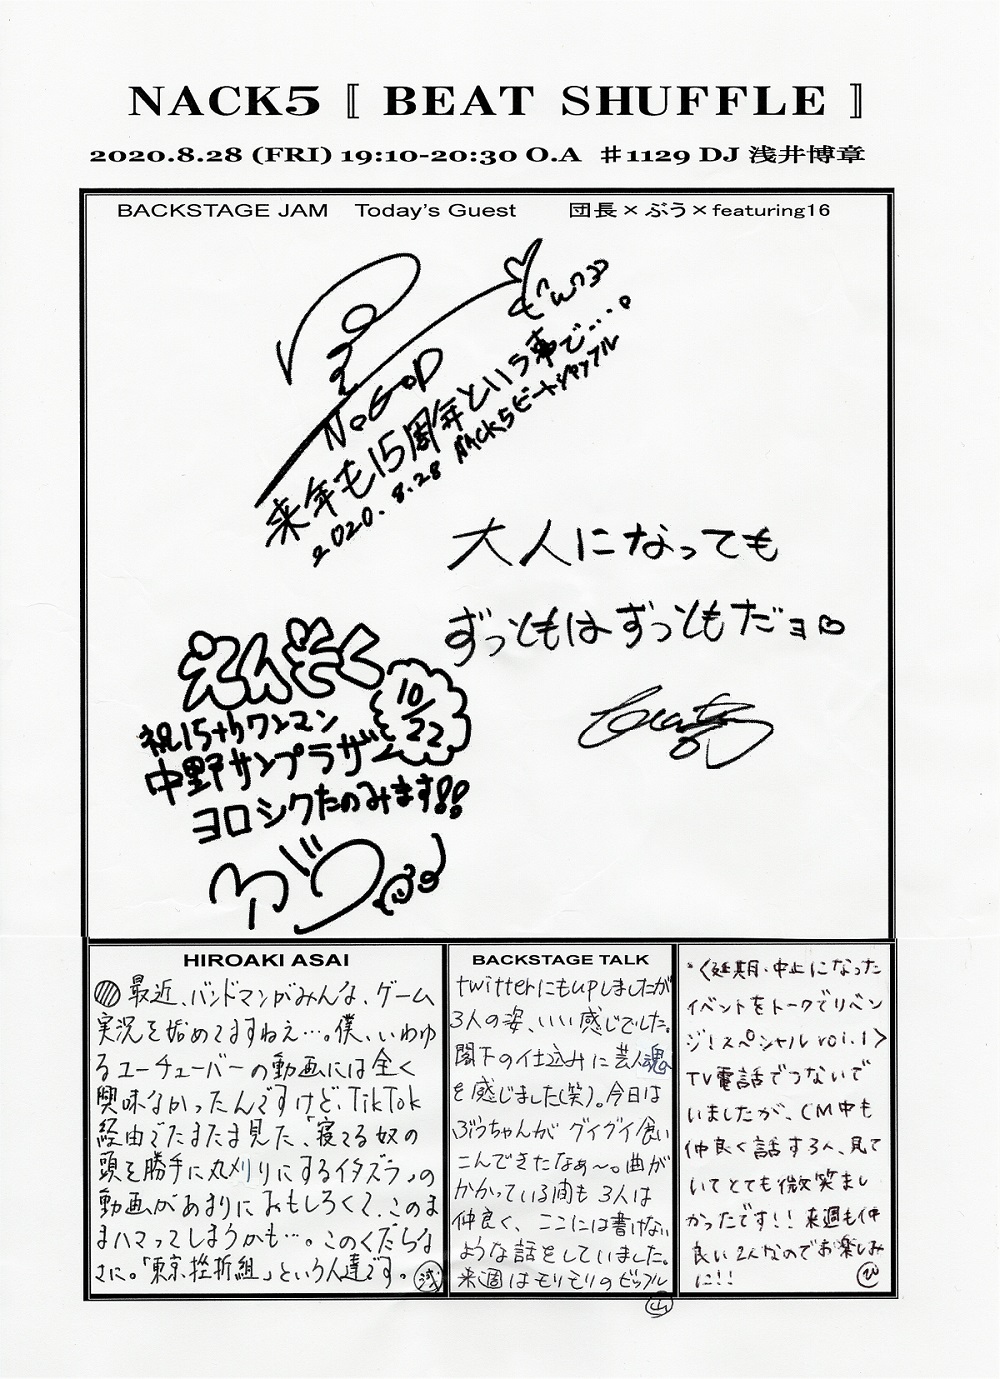 NACK5 〚 BEAT SHUFFLE 〛
2020.8.28 (FRI) 19:10-20:30 O.A #1129 DJ 浅井博章
BACKSTAGE JAM Today's Guest 団長×ぶう×featuring16
NoGoD
来年も15周年という事で…。
2020.8.28 NACK5ビートシャッフル
大人になっても
ずっともはずっともだョ
えんそく
祝15thワンマン
10/22
中野サンプラザ
ヨロシクたのみます!!
ぶう
HIROAKI ASAI
最近、バンドマンがみんな、ゲーム
実況を始めてますねえ…。僕、いわゆ
るユーチューバーの動画には全く
興味なかったんですけど、TikTok
経由でたまたま見た、「寝てる奴の
頭を勝手に丸刈りにするイタズラ」の
動画があまりにおもしろくて、このま
まハマってしまうかも…。このくだらな
さに。「東京挫折組」という人達です。浅
BACKSTAGE TALK
twitterにもupしましたが
3人の姿、いい感じでした。
閣下の仕込みに芸人魂
を感じました(笑)。今日は
ぶうちゃんがグイグイ食い
こんできたなぁ〜。曲が
かかっている間も3人は
仲良く、ここには書けない
ような話をしていました。
来週はモリモリのビッフル
山
*〈延期・中止になった
イベントをトークでリベン
ジ!スペシャル vol.1〉
TV電話でつないで
いましたが、CM中も
仲良く話す3人、見て
いてとても微笑まし
かったです!!来週も仲
良い2人なのでお楽しみ
に!!